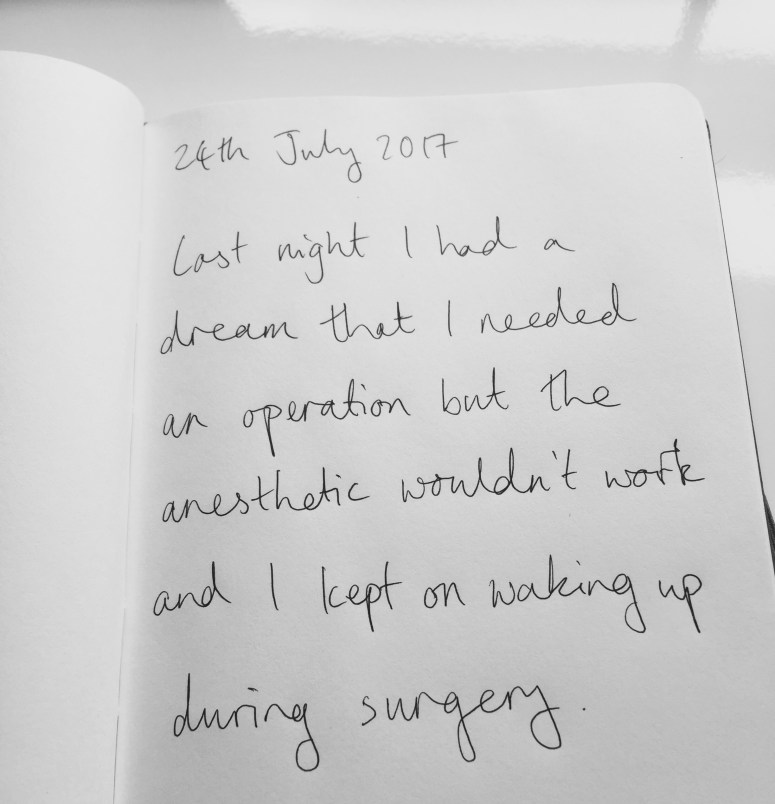 24th July 2017
Last night I had a
dream that I needed
an operation but the
anesthetic wouldn't work
and I kept on waking up
during surgery.